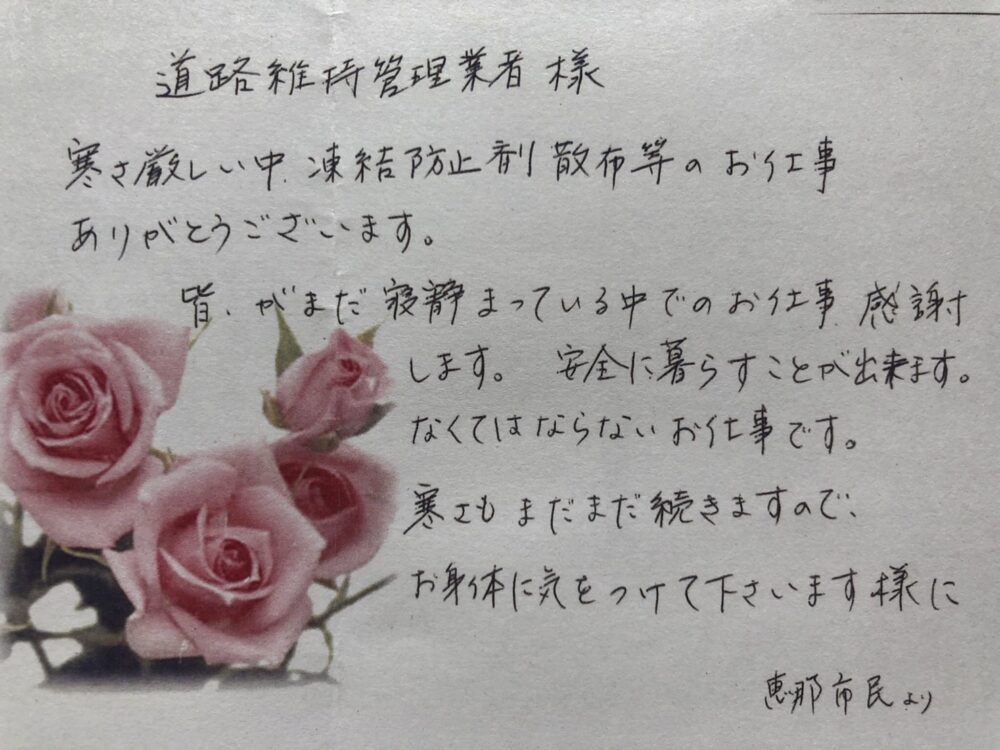 道路維持管理業者 様
寒さ厳しい中、凍結防止剤散布等のお仕事
ありがとうございます。
皆、がまだ寝静まっている中でのお仕事、感謝
します。 安全に暮らすことが出来ます。
なくてはならないお仕事です。
寒さもまだまだ続きますので、
お身体に気をつけて下さいます様に
恵那市民より